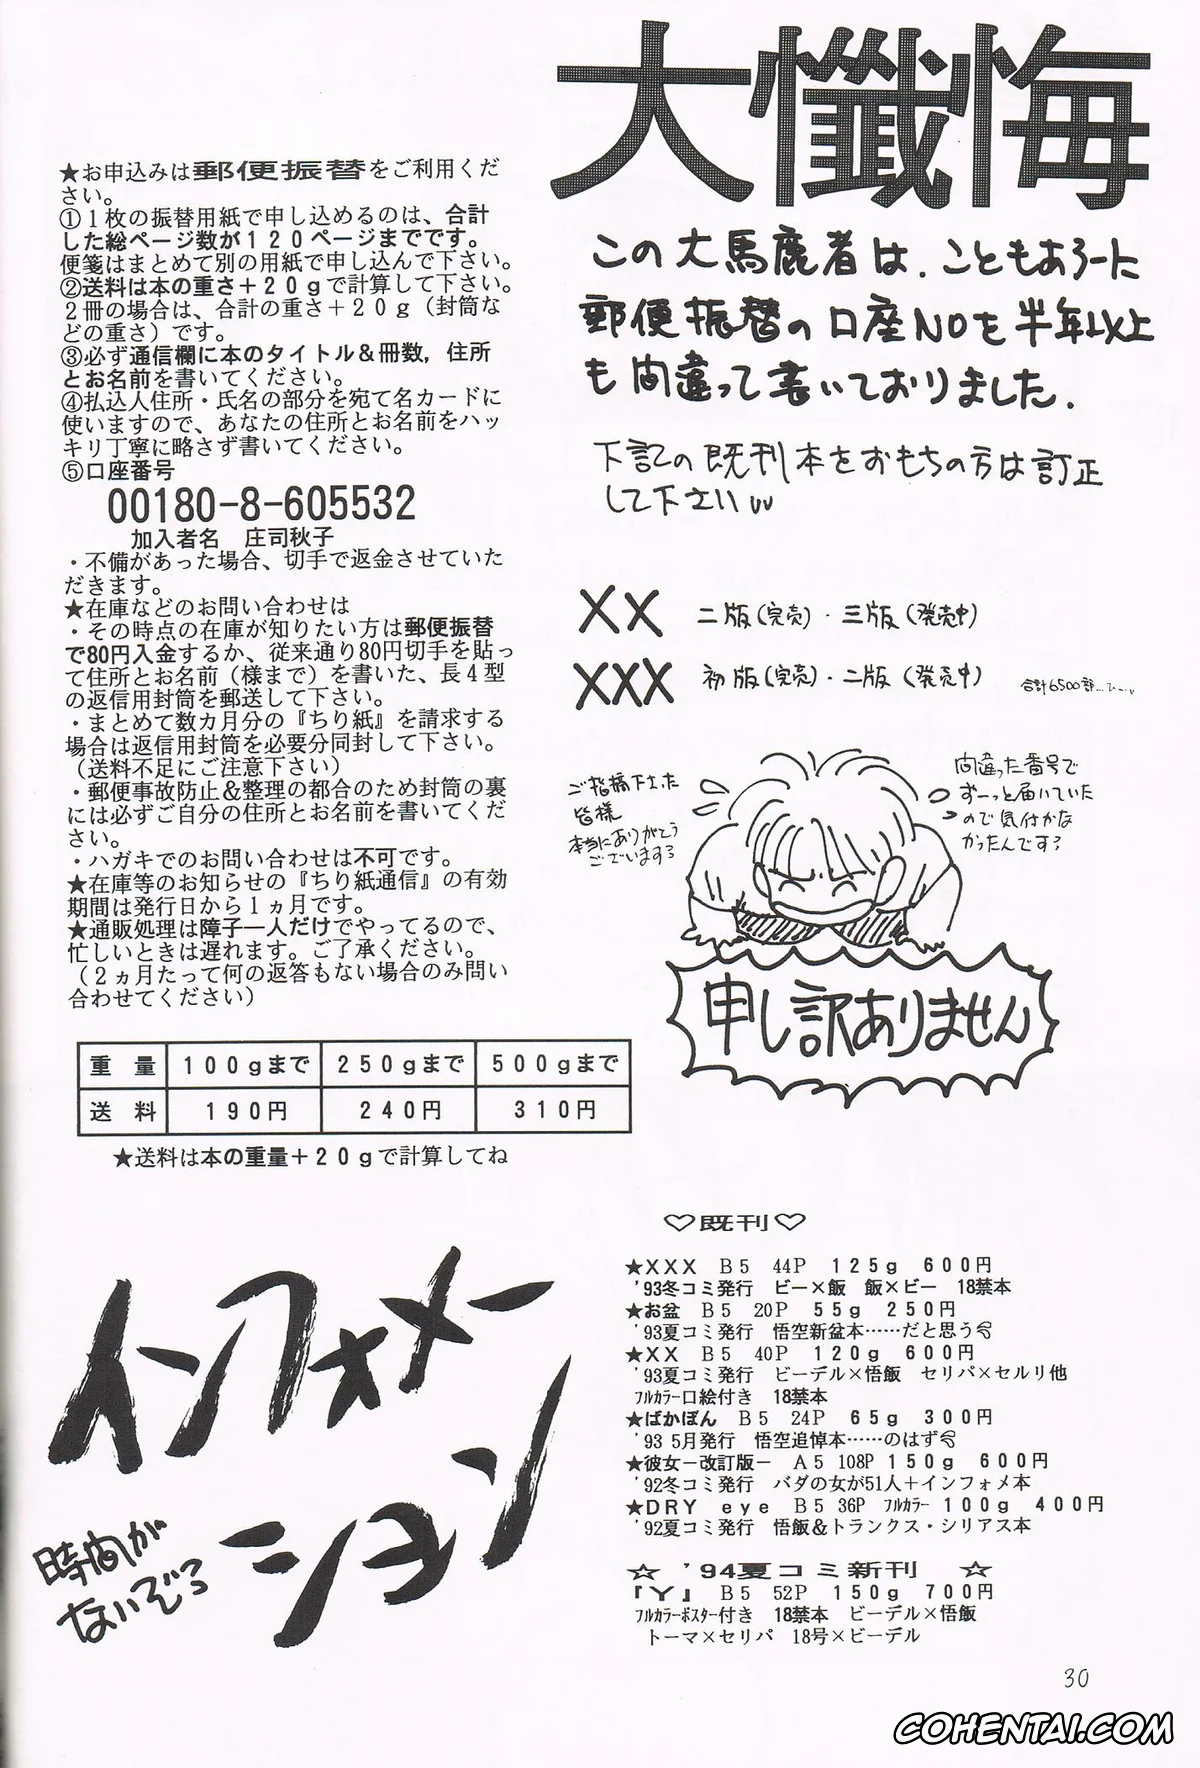 大懺悔
この大馬鹿者は、こともあろーに
郵便振替の口座NOを半年以上
も間違って書いておりました.
下記の既刊本をおもちの方は訂正
して下さい
XX 二版(完売)・三版(発売中)
XXX 初版(完売)・二版(発売中)
合計6500部…
ご指摘下さった
皆様
本当にありがとう
ございますう
間違った番号で
ずーっと届いていた
ので気付かな
かったんですう
申し訳ありません
★お申込みは郵便振替をご利用くだ
さい。
①1枚の振替用紙で申し込めるのは、合計
した総ページ数が120ページまでです。
便箋はまとめて別の用紙で申し込んで下さい。
②送料は本の重さ+20gで計算して下さい。
2冊の場合は、合計の重さ+20g(封筒な
どの重さ)です。
③必ず通信欄に本のタイトル&冊数,住所
とお名前を書いてください。
④払込人住所・氏名の部分を宛て名カードに
使いますので、あなたの住所とお名前をハッ
キリ丁寧に略さず書いてください。
⑤口座番号
00180-8-605532
加入者名 庄司秋子
・不備があった場合、切手で返金させていた
だきます。
★在庫などのお問い合わせは
・その時点の在庫が知りたい方は郵便振替
で80円入金するか、従来通り80円切手を貼っ
て住所とお名前(様まで)を書いた、長4型
の返信用封筒を郵送して下さい。
・まとめて数カ月分の『ちり紙』を請求する
場合は返信用封筒を必要分同封して下さい。
(送料不足にご注意下さい)
・郵便事故防止&整理の都合のため封筒の裏
には必ずご自分の住所とお名前を書いてくだ
さい。
・ハガキでのお問い合わせは不可です。
★在庫等のお知らせの『ちり紙通信』の有効
期間は発行日から1ヵ月です。
★通販処理は障子一人だけでやってるので、
忙しいときは遅れます。ご了承ください。
(2ヵ月たって何の返答もない場合のみ問い
合わせてください)
重 量 100gまで 250gまで 500gまで
送 料 190円 240円 310円
★送料は本の重量+20gで計算してね
インフォメー
ション
時間が
ないぞう
♡既刊♡
★XXX B5 44P 125g 600円
'93冬コミ発行 ビー×飯 飯×ビー 18禁本
★お盆 B5 20P 55g 250円
'93夏コミ発行 悟空新盆本……だと思う
★XX B5 40P 120g 600円
'93夏コミ発行 ビーデル×悟飯 セリパ×セルリ他
フルカラー口絵付き 18禁本
★ばかぼん B5 24P 65g 300円
'93 5月発行 悟空追悼本……のはず
★彼女-改訂版- A5 108P 150g 600円
'92冬コミ発行 バダの女が51人+インフォメ本
★DRY eye B5 36P フルカラー 100g 400円
'92夏コミ発行 悟飯&トランクス・シリアス本
☆ '94夏コミ新刊 ☆
『Y』 B5 52P 150g 700円
フルカラーポスター付き 18禁本 ビーデル×悟飯
トーマ×セリパ 18号×ビーデル
30
COHENTAI.COM